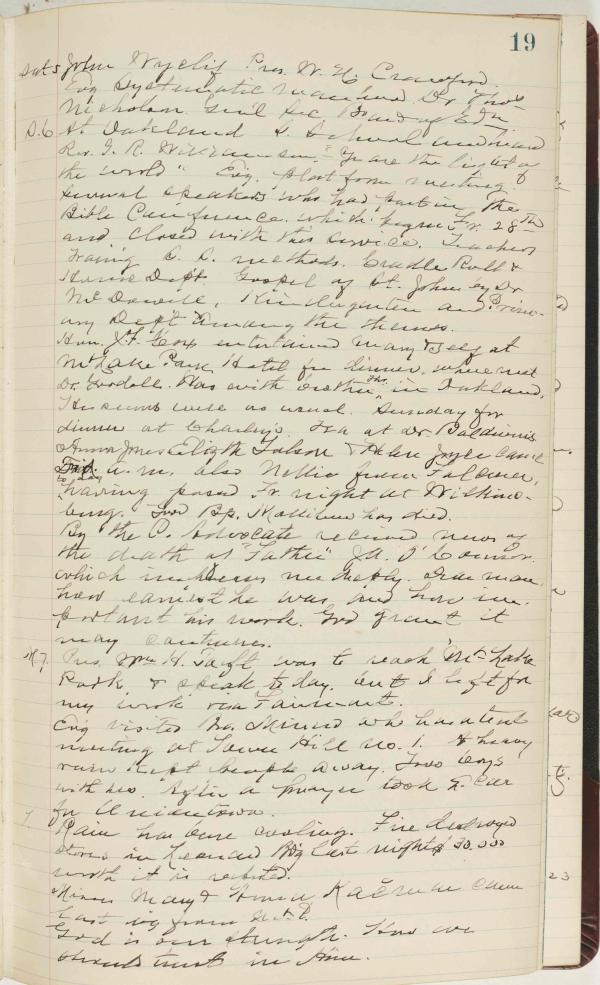 19
Sat. 5 John Wyclif Pres. W. H. Crawford.
Evg Systematic Dr. Thos
Nicholson Genl Sec. Board of Edn
S. 6 At Oakland S. School and heard
Rev. G. R. Williamson. "Ye are the light of
the world" Evg. platform meeting
several speakers who had part in the
Bible Conference which began Fr. 28th
and closed with this service. Teachers
Traing S. S. methods. Cradle Roll &
Home Dept. Gospel of St. John by Dr
McDowell, Kindergarten and Prim-
ary Dept among the themes.
Hon. entertained many at
Mt Lake Park Hotel for dinner, where met
Dr. Goodell. Was with in Oakland,
His were as usual. Sunday for
dinner at Charley's. Tea at Dr. Baldwin's
Anna Jones Elizth Folson & Helen Jones came
a.m. also Nellie from
to day
having passed Fr. night at Wilkins-
burg. Bp. Mallilieu has died.
By the C. Advocate received news of
the death of "Father" J. A. O'Connor
which me deeply. Dear man,
how earnest he was, and how im-
portant his work. God grant it
may continue.
M. 7. Pres. Wm H. Taft was to reach Mt. Lake
Park & speak to day. but I left for
my work via Fairmont.
Evg visited Bro. who has a tent
meeting at Hill No. 1. A heavy
rain kept people away. Two boys
with us. After a prayer took car
for Uniontown.
Rain has been cooling. Fire destroyed
store in Leonard last night $30,000
worth it is reported.
Misses Mary & came
last evg from
God is our strength. How we
should trust in Him.